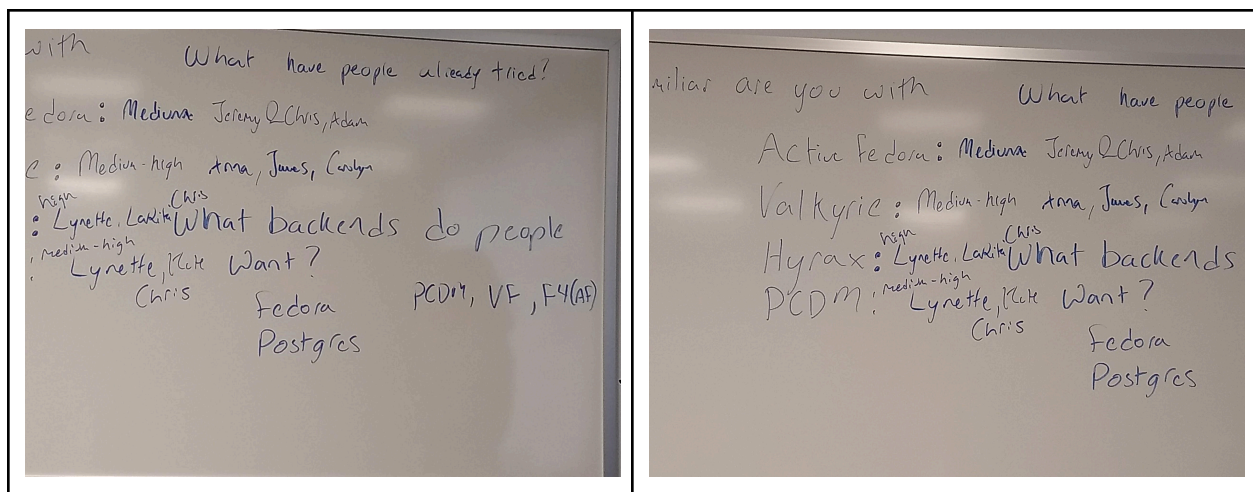 with What have people already tried?
edora: Medium Jeremy Q Chris, Adam
e: Medium-high Anna, James, Carolyn
high Chris
: Lynette, LaRita What backends do people
medium-high
: Lynette, Kate Want?
Chris
Fedora PCDM, VF, F4(AF)
Postgres
miliar are you with What have people
Active Fedora: Medium Jeremy Q Chris, Adam
Valkyrie: Medium-high Anna, James, Carolyn
high Chris
Hyrax: Lynette, LaRita What backends
medium-high
PCDM: Lynette, Kate Want?
Chris
Fedora
Postgres